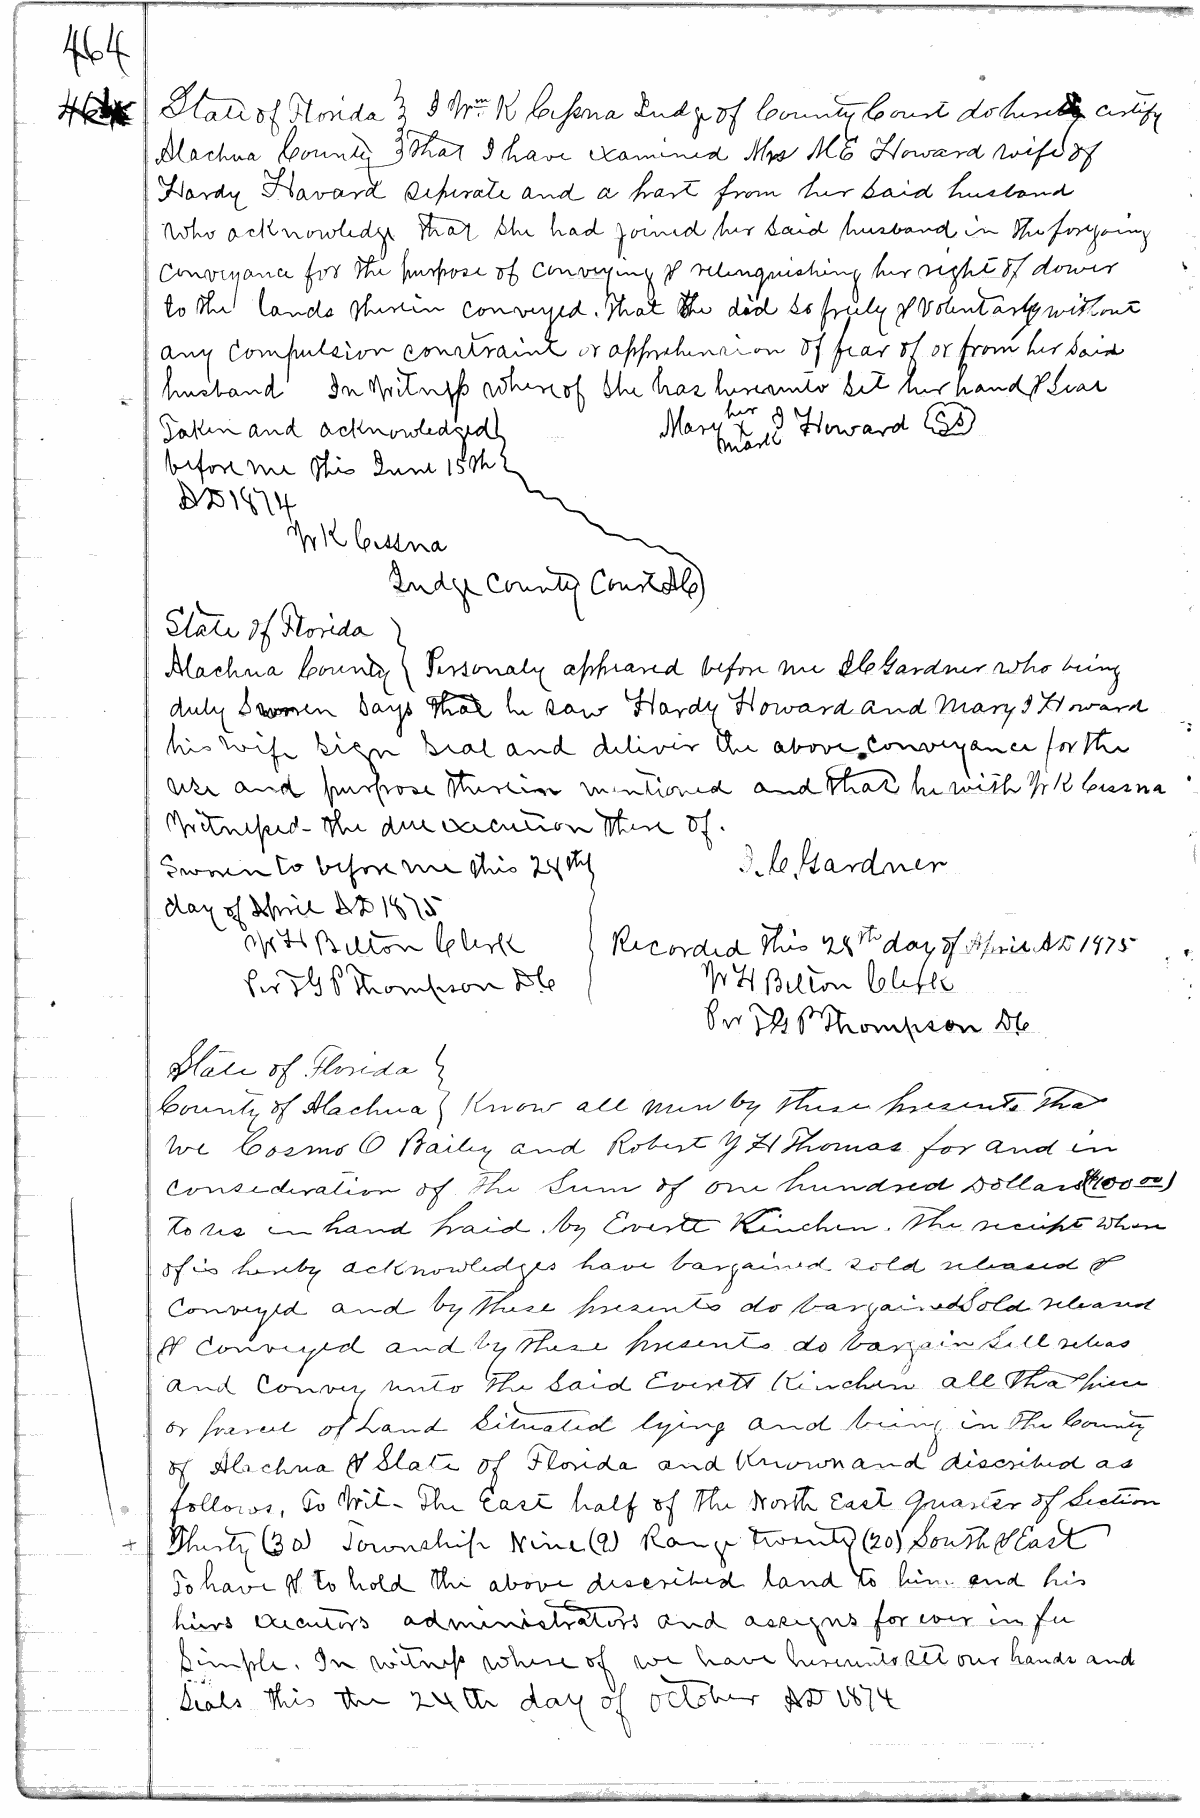 464
State of Florida } I Wm K Cessna Judge of County Court do hereby certify
Alachua County } that I have examined Mrs M E Howard wife of
Hardy Havard seperate and a part from her said husband
who acknowledge that she had joined her said husband in the foregoing
conveyance for the purpose of conveying & relenquishing her right of dower
to the lands therein conveyed. that she did so freely & volentarly without
any compulsion constraint or apprehension of fear of or from her said
husband In Witness whereof she has hereunto set her hand & seal
Taken and acknowledged } Mary her x mark J Howard
before me this June 15th }
AD 1874
W K Cessna
Judge County Court AC
State of Florida }
Alachua County { Personaly appeared before me J C Gardner who being
duly Sworen says that he saw Hardy Howard and Mary J Howard
his wife sign seal and deliver the above conveyance for the
use and purpose therein mentioned and that he with W K Cessna
Witnessed the due execution there of.
Sworen to before me this 28th J. C. Gardner
day of April AD 1875
W H Belton Clerk { Recorded this 28th day of April AD 1875
Per T G P Thompson DC W H Belton Clerk
Per T G P Thompson DC
State of Florida }
County of Alachua } Know all men by these presents that
we Cosmo O Bailey and Robert Y H Thomas for and in
consideration of the sum of one hundred Dollars ($100 00)
to us in hand paid by Everett Kinchen. The receipt where
of is hereby acknowledges have bargained sold released &
conveyed and by these presents do bargained Sold released
& conveyed and by these presents do bargain sell releas
and convey unto the said Everett Kinchen all tha piece
or parcel of Land Situated lying and being in the County
of Alachua & State of Florida and Known and discribed as
follows, To Wit - The East half of the North East Quarter of Section
Thirty (30) Township Nine (9) Range twenty (20) South & East
To have & to hold the above described land to him and his
heirs executors administrators and assigns for ever in fee
Simple. In witness where of we have hereunto set our hands and
Seals this the 24th day of October AD 1874